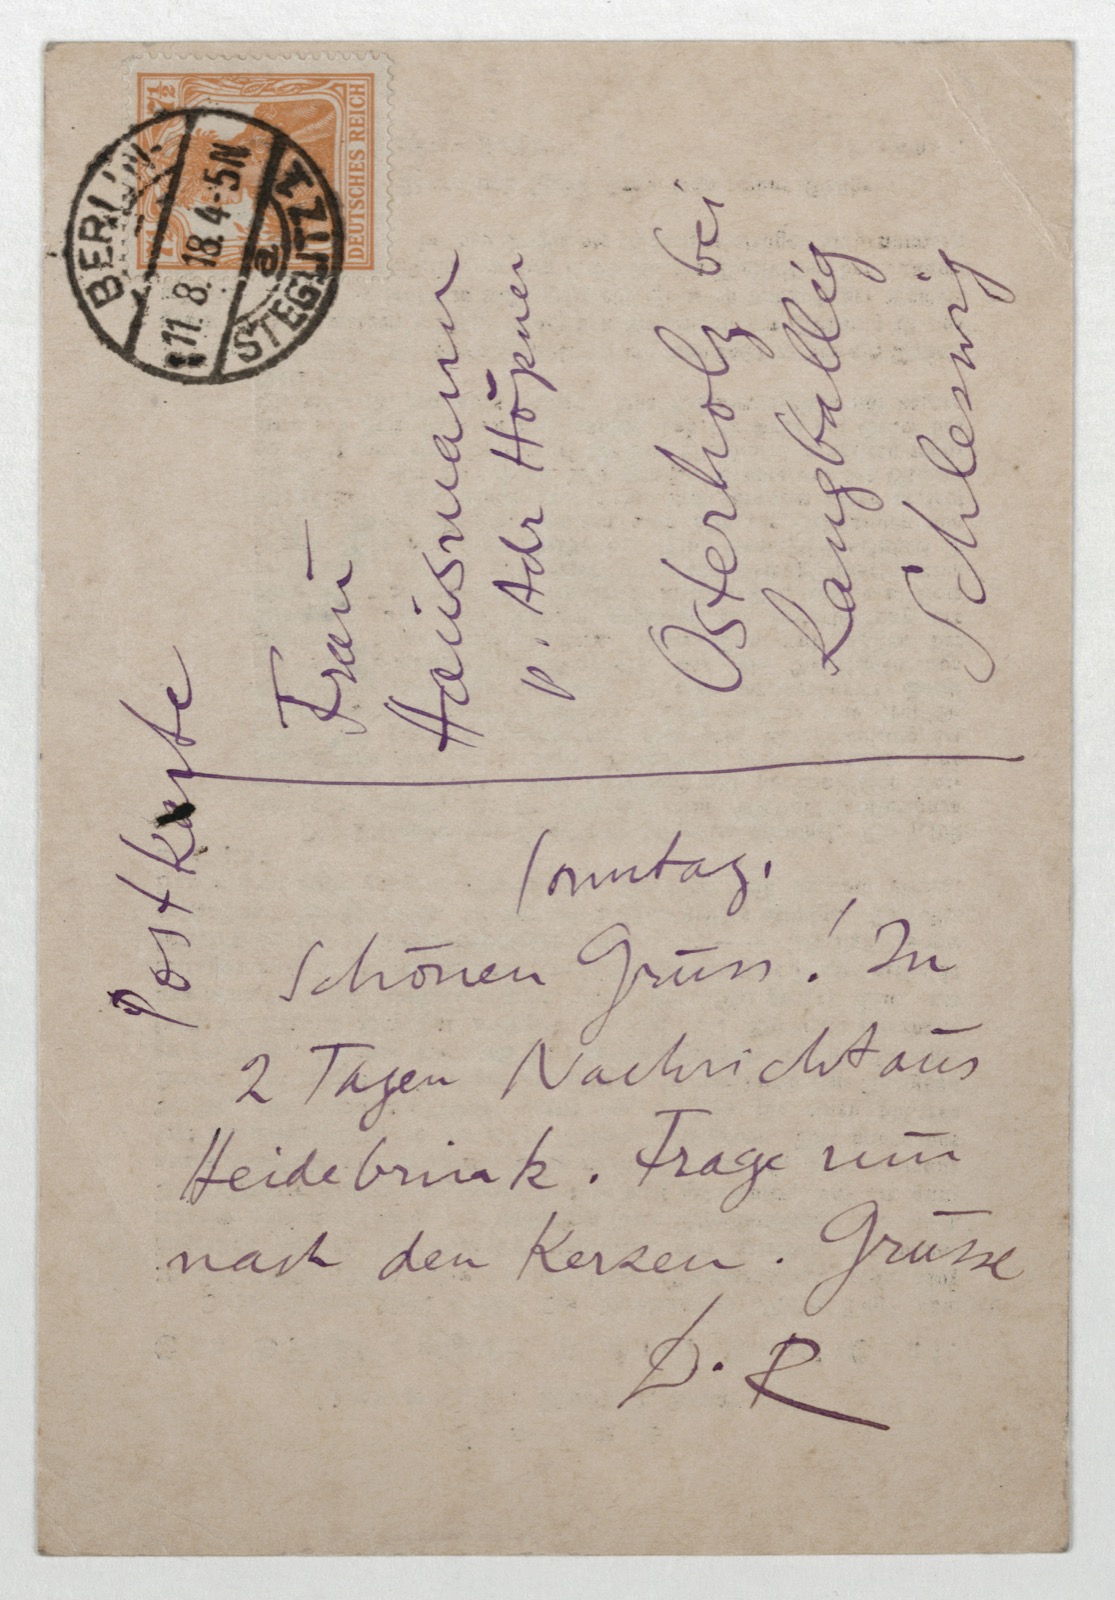 7½
DEUTSCHES REICH
BERLIN
11.8.18.4-5N
a
STEGLITZ 1
Postkarte
Frau
Hausmann
p. Adr Höpner
Osterholz bei
Langballig
Schleswig
Sonntag.
Schönen Gruss! In
2 Tagen Nachricht aus
Heidebrink. Frage nun
nach den Kerzen. Grüsse
D. R